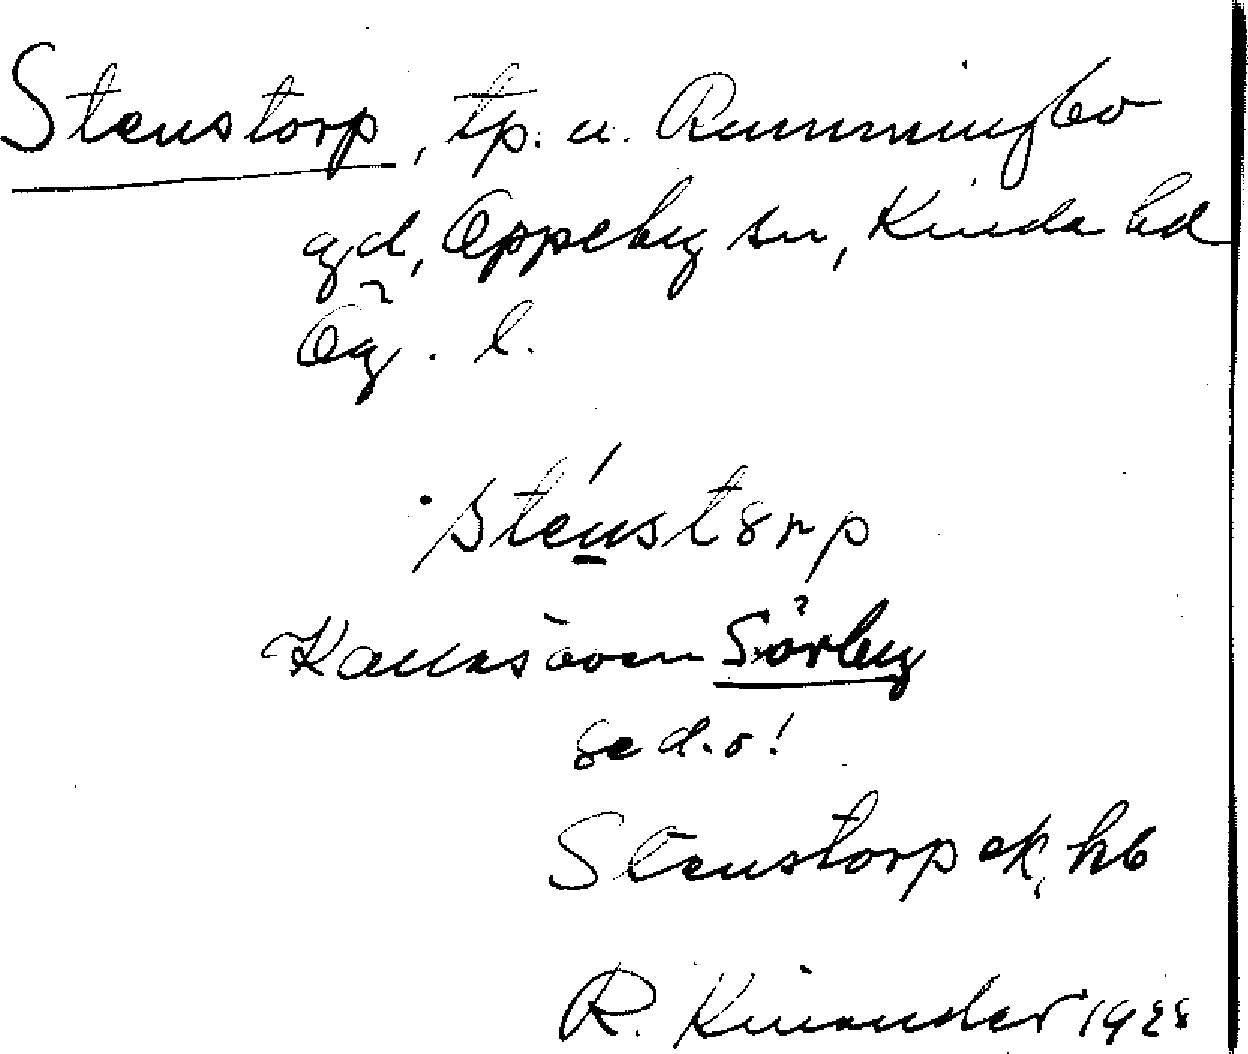 Stenstorp, tp. u. Rumningbo
gd, Oppeby sn, Kinda hd
Ög. l.
sténstərp
Kallas även Sörby
se d.o!
Stenstorp ek, hb
R. Kinander 1928